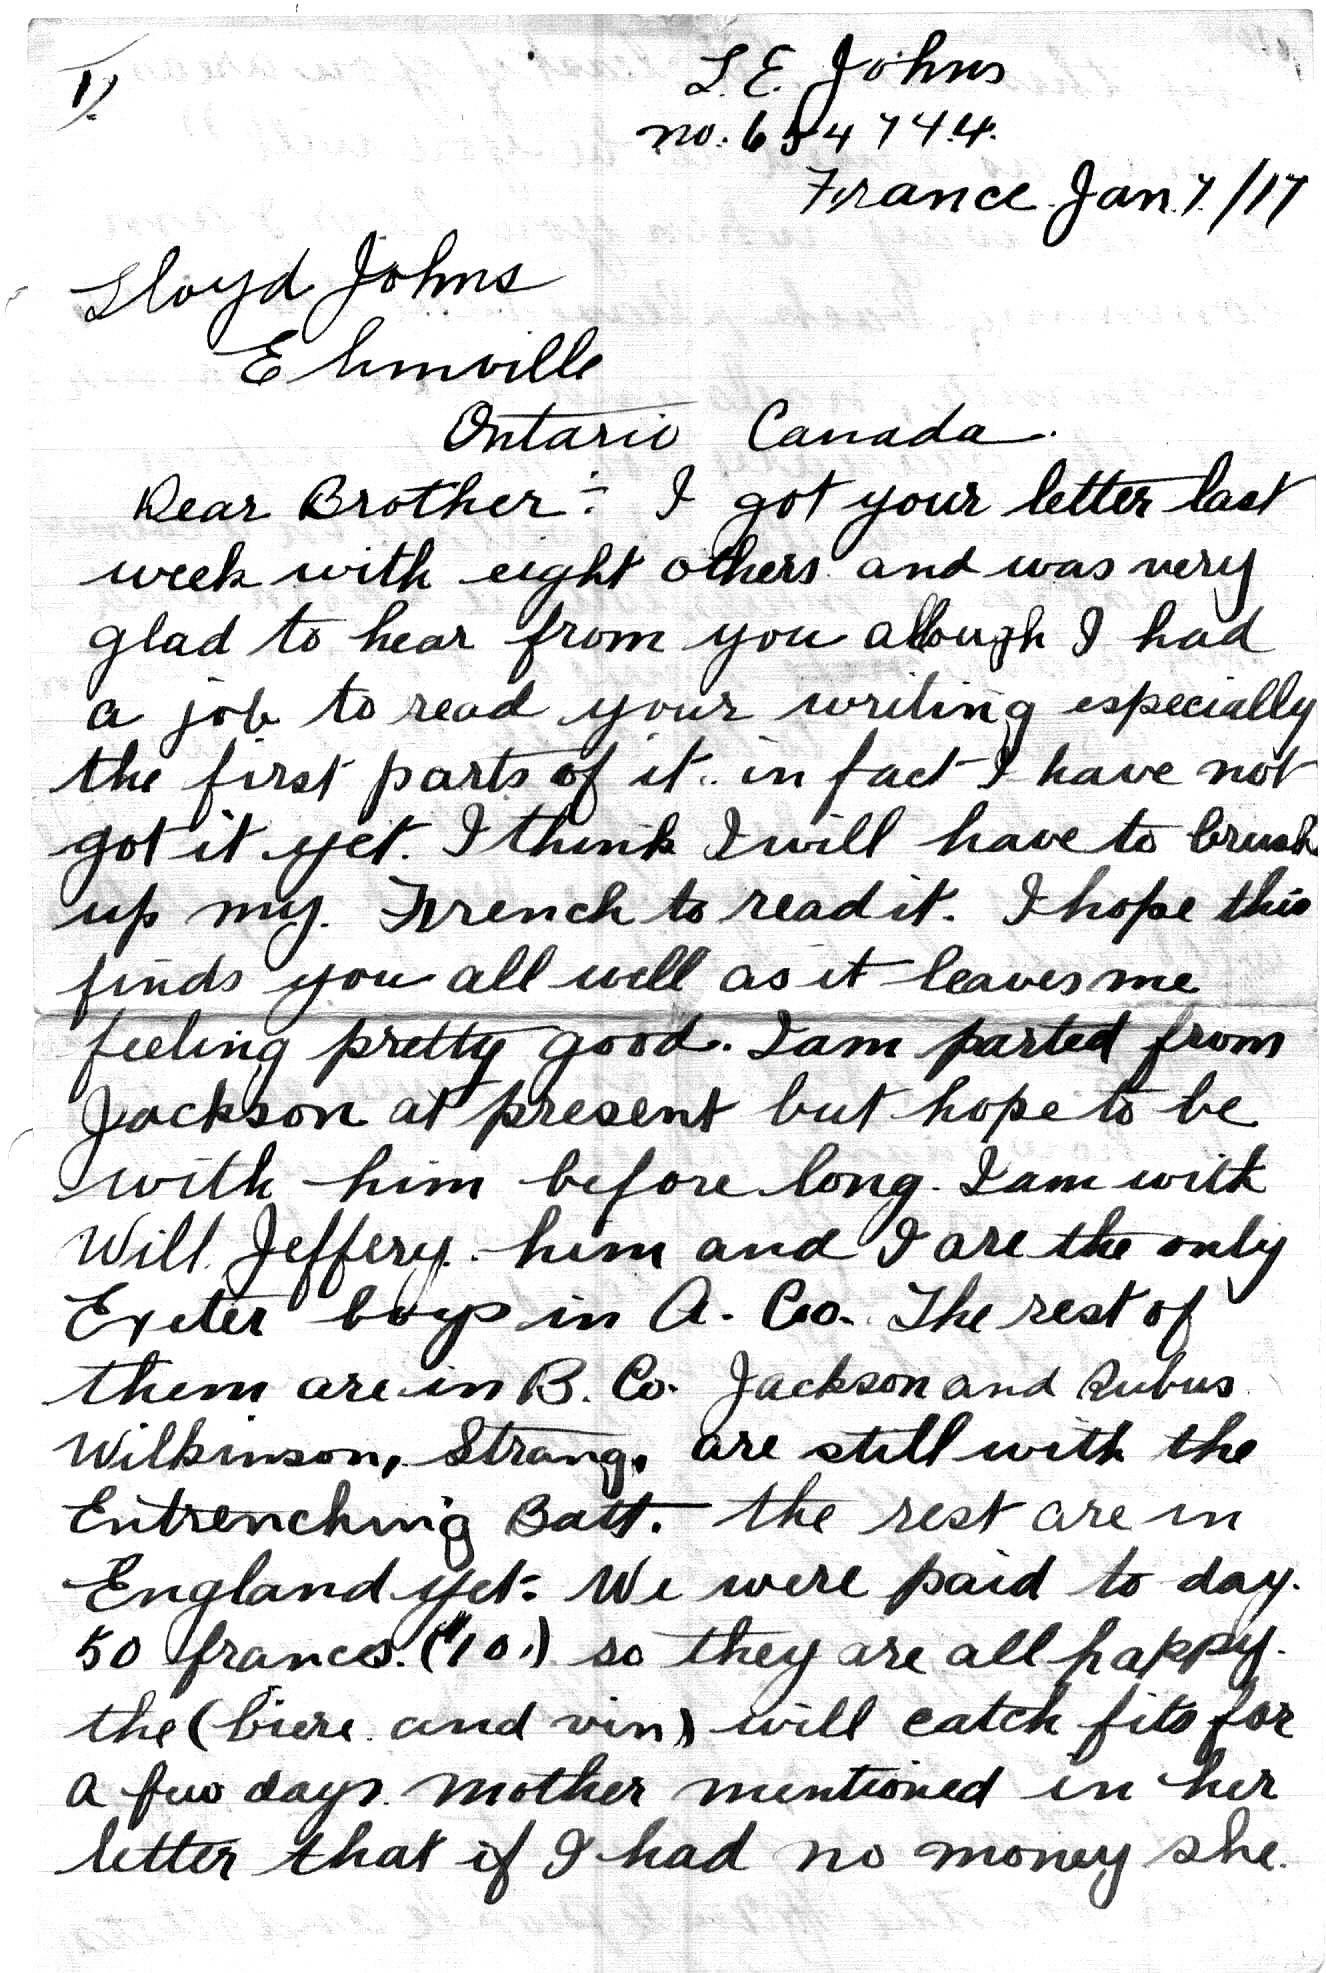 1).
L. E. Johns
no. 654744.
France Jan. 7/17
Lloyd Johns
Elimville
Ontario Canada.
Dear Brother:- I got your letter last
week with eight others and was very
glad to hear from you although I had
a job to read your writing especially
the first parts of it. in fact I have not
got it yet. I think I will have to brush
up my French to read it. I hope this
finds you all well as it leaves me
feeling pretty good. I am parted from
Jackson at present but hope to be
with him before long. I am with
Will Jeffery. him and I are the only
Exeter boys in A. Co. The rest of
them are in B. Co. Jackson and Rubus
Wilkinson, Strang, are still with the
Entrenching Batt. the rest are in
England yet. We were paid to day.
50 francs. ($10.) so they are all happy.
the (biere and vin) will catch fits for
a few days. Mother mentioned in her
letter that if I had no money she.